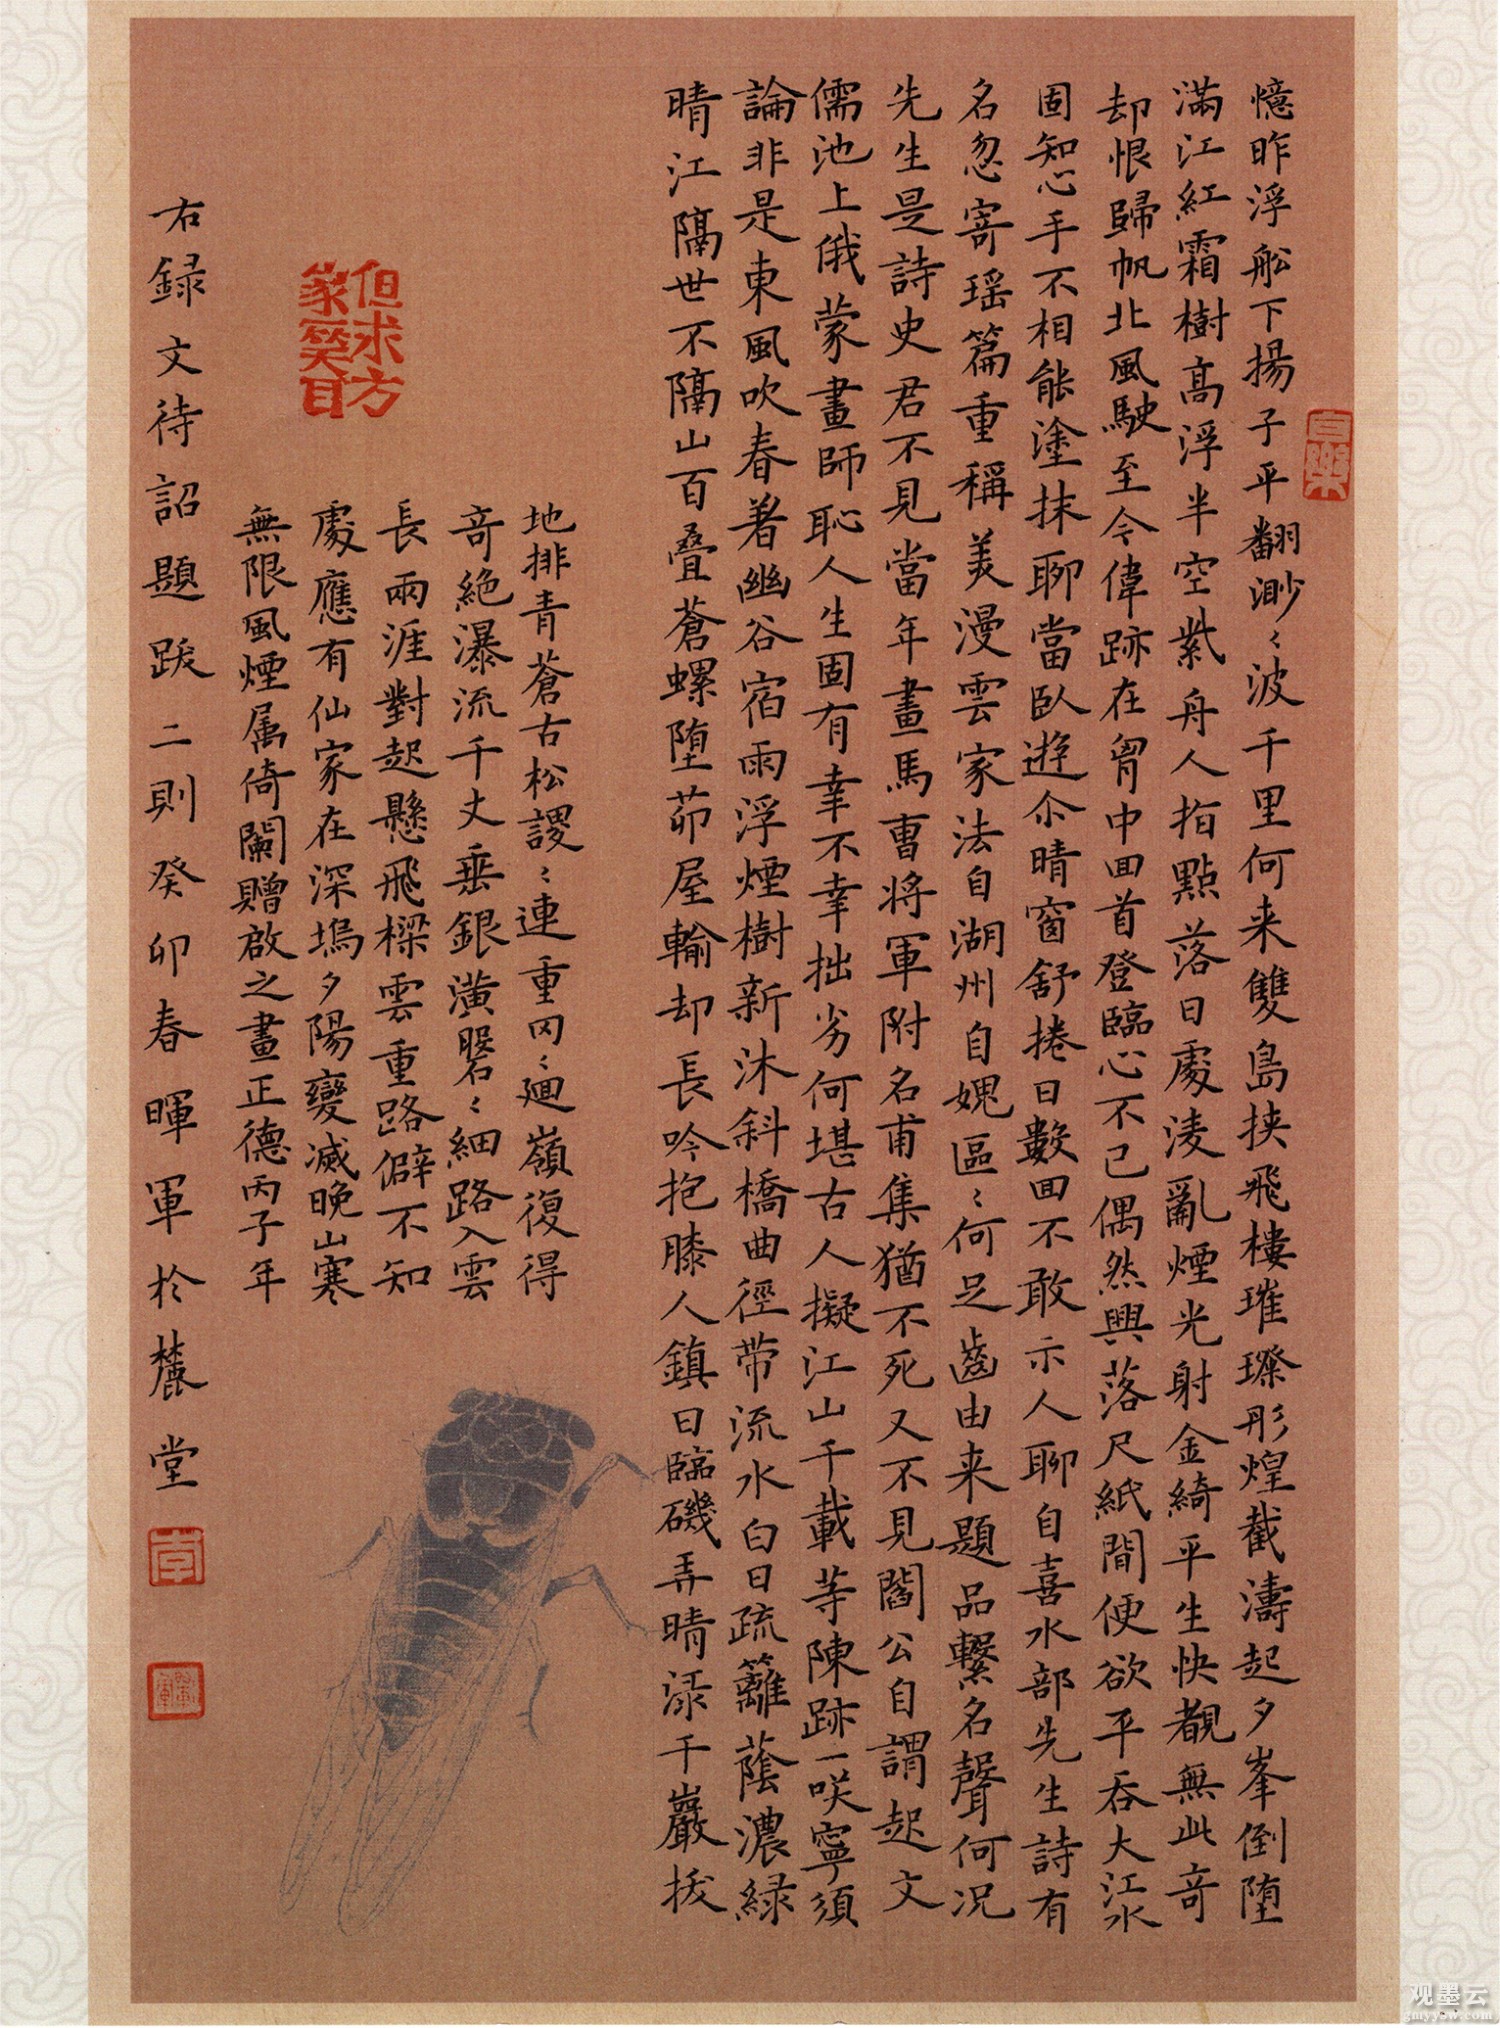 憶昨浮船下揚子平翻渺〻波千里何来雙島挟飛樓璀璨彤煌截濤起夕峯倒堕
滿江紅霜樹高浮半空紫舟人指點落日處淩亂煙光射金綺平生快覩無此奇
却恨歸帆北風駛至今偉跡在胷中回首登臨心不已偶然興落尺紙間便欲平吞大江水
固知心手不相能塗抹聊當臥遊尒晴窗舒捲日數回不敢示人聊自喜水部先生詩有
名忽寄瑶篇重稱美漫雲家法自湖州自媿區〻何足齒由来題品繫名聲何况
先生是詩史君不見當年畫馬曹将軍附名甫集猶不死又不見閻公自謂起文
儒池上俄蒙畫師恥人生固有幸不幸拙劣何堪古人擬江山千載等陳跡一咲寧須
論非是東風吹春着幽谷宿雨浮煙樹新沐斜橋曲徑带流水白日疏籬蔭濃緑
晴江隔世不隔山百疊蒼螺堕茆屋輸却長吟抱膝人鎮日臨磯弄晴渌千巖拔
地排青蒼古松謖〻連重冈〻迴嶺復得
竒絶瀑流千丈垂銀潢磐〻細路入雲
長兩涯對起懸飛樑雲重路僻不知
處應有仙家在深塢夕陽變滅晚山寒
無限風煙属倚闌贈啟之畫正德丙子年
但求方
家一笑耳
右録文待詔題跋二則癸卯春暉軍於麓堂